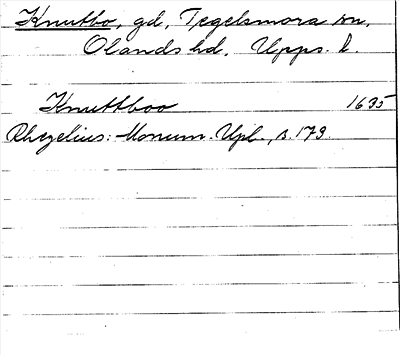 Knutbo, gd, Tegelsmora sn,
Olands hd, Upps. l.
Knuttboo 1635
Rhezelius: Monum. Upl., s. 173.